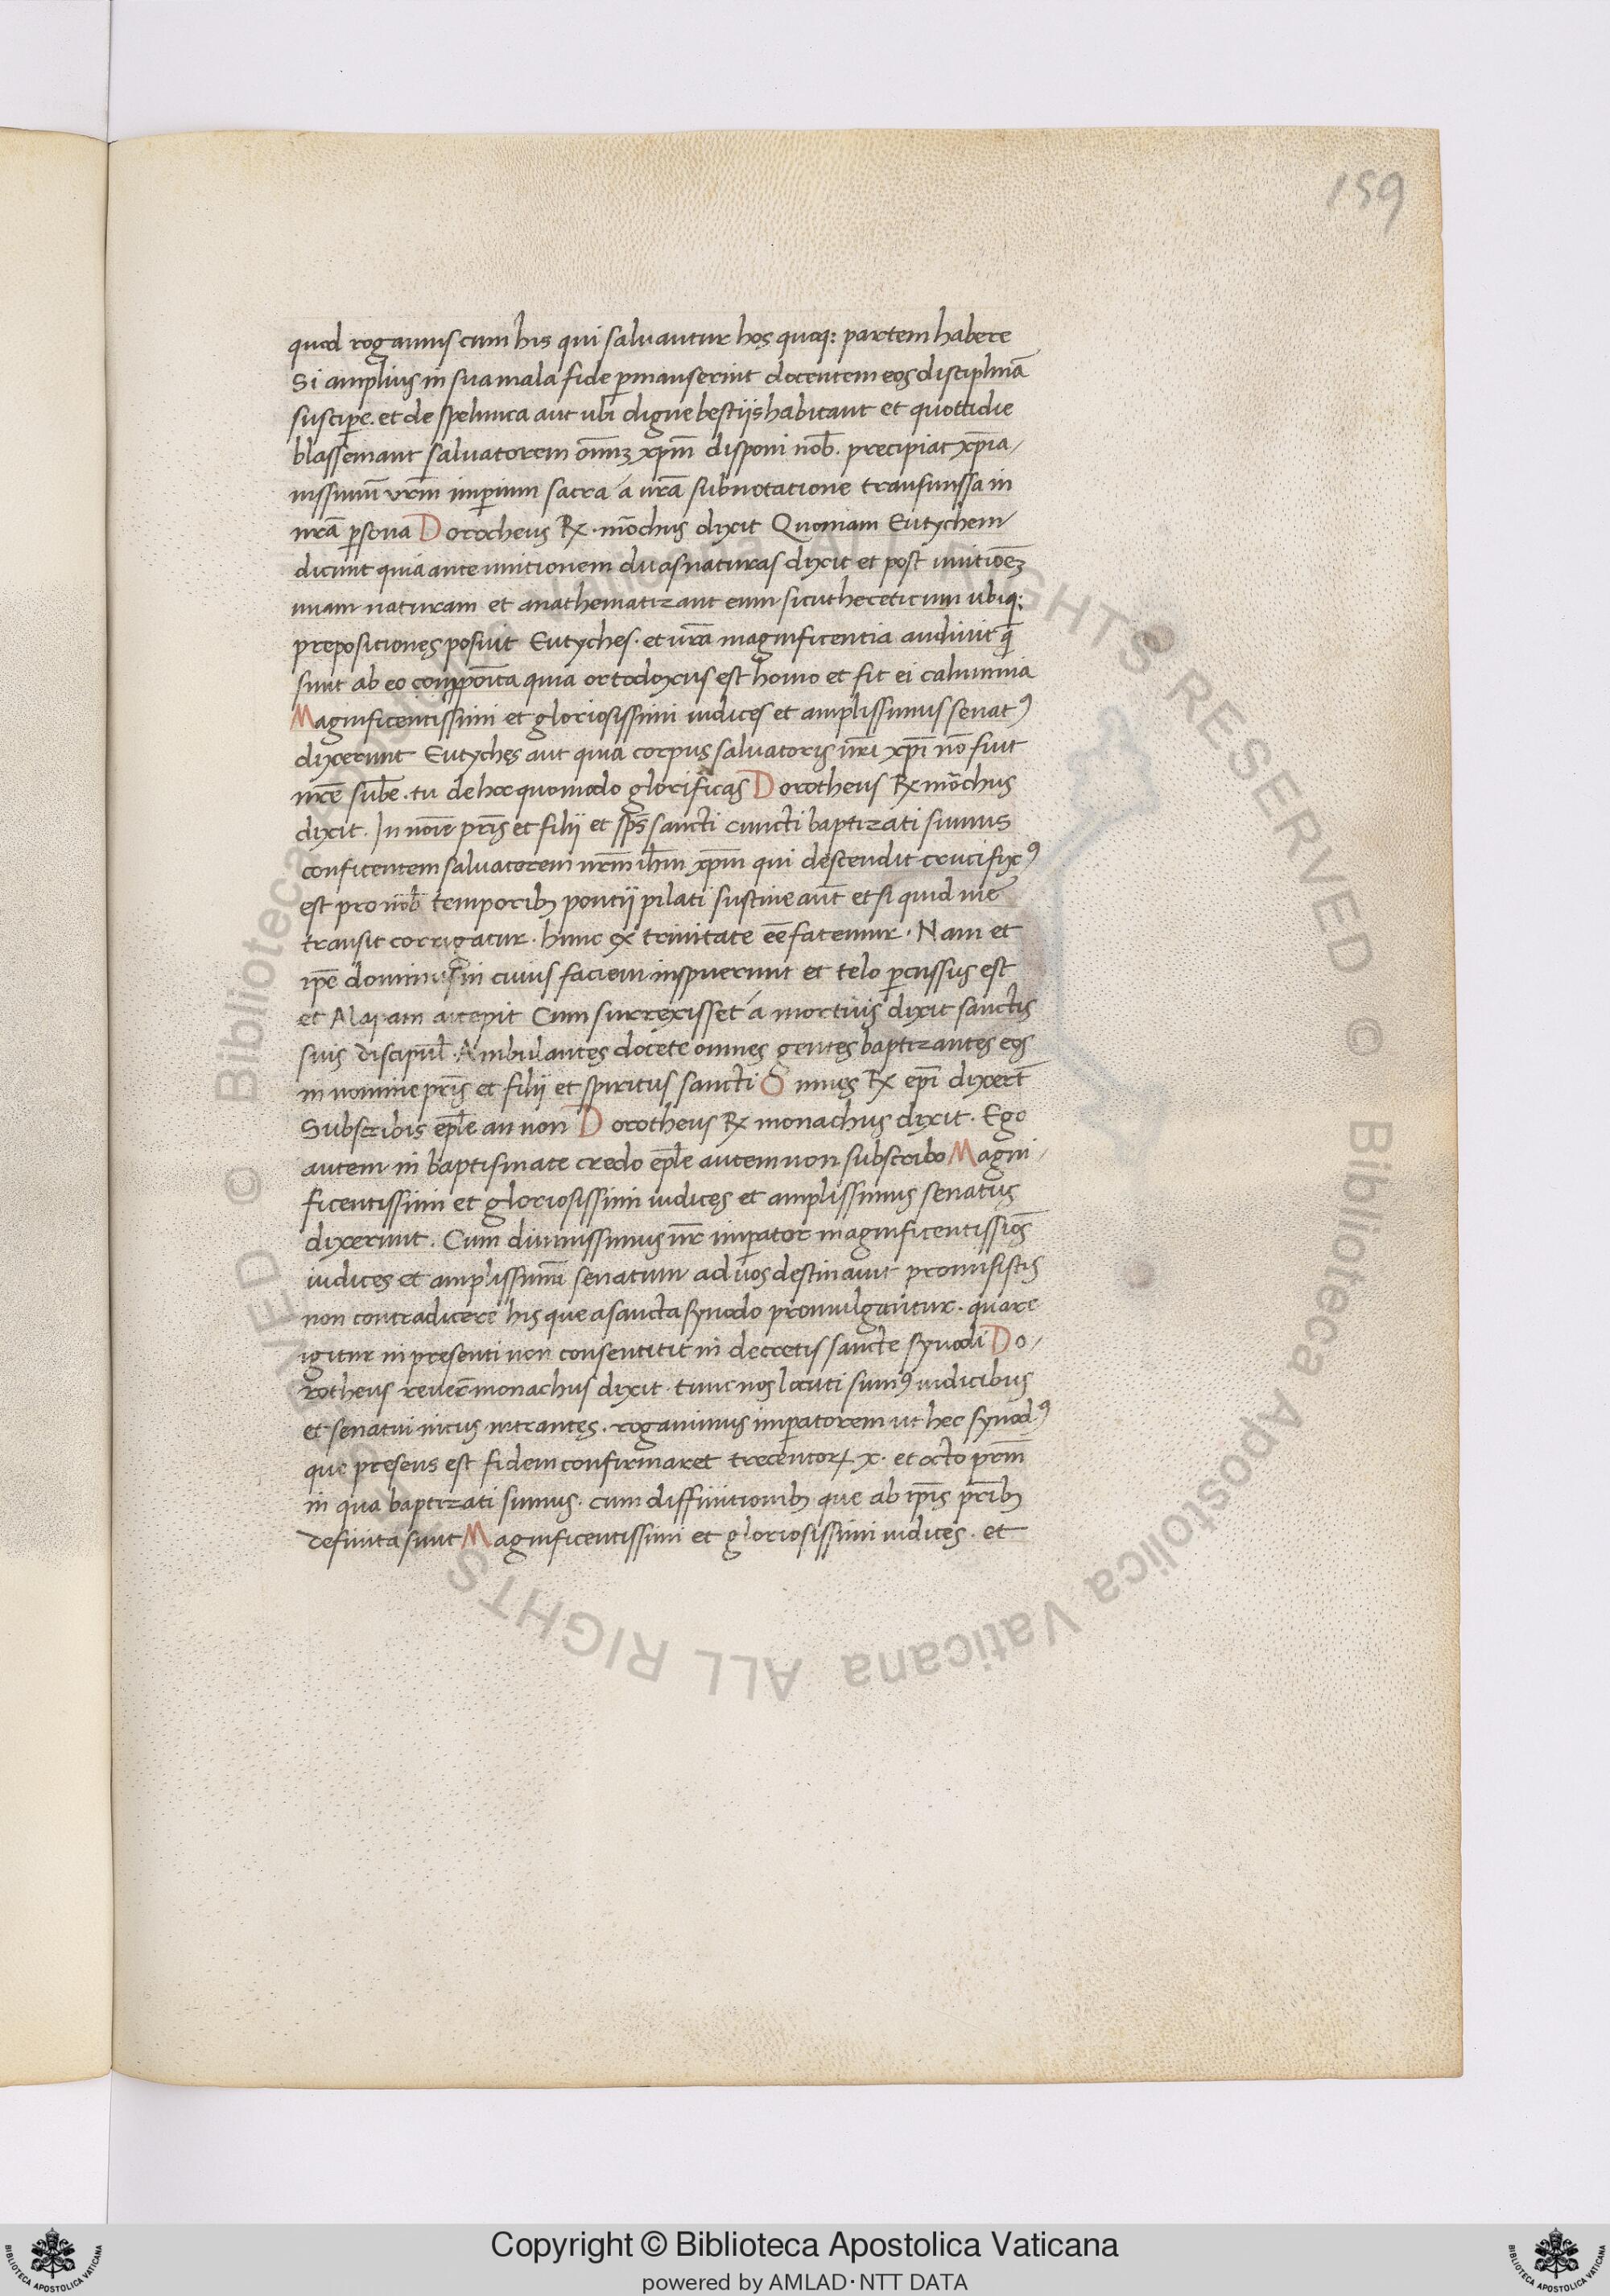 159
quod rogamus cum his qui saluantur hos quoq: partem habere
Si amplius in sua mala fide ꝑmanserint docentem eos disciplinā
suscipe. et de spelunca aut ubi digne bestijs habitant et quottidie
blassemant saluatorem om̄ꝫ xp̄m disponi nob̄. precipiat xp̄ia/
nissimū vr̄m imꝑium sacra á ur̄a subnotatione transmissa in
nr̄ā ꝑsona Dorotheus Rx. mōchus dixit Quoniam Eutychem
dicunt quia ante unitionem duas naturas dixit et post unitiōeꝫ
unam naturam et anathematizant eum sicut hereticum ubiq:
prepositiones posuit Eutyches. et ur̄a magnificentia audiuit q̄
sunt ab eo compoīta quia ortodoxus est homo et fit ei calumnia
Magnificentissimi et gloriosissimi iudices et amplissimus senatꝰ
dixerunt Eutyches aut quia corpus saluatoris nr̄i xp̄i nō fuit
nr̄ē sub̄e. tu de hoc quomodo glorificas Dorotheus Rx mōchus
dixit. In noīe pr̄is et filij et sp̄s sancti cuncti baptizati sumus
confitentem saluatorem nr̄m ih̄m xp̄m qui descendit crucifixꝰ
est pro nob̄ temporib; pontij pilati sustine aūt et si quid me
transit corrigatur. hunc ex trinitate eē fatemur. Nam et
ip̄e dominus in cuius faciem inspuerunt et telo ꝑcussus est
et Alapam accepit Cum surrexisset á mortuis dixit sanctis
suis discipul̄. Ambulantes docete omnes gentes baptizantes eos
in nomine pr̄is et filij et spiritus sancti Omnes Rx ep̄i dixert̄
Subscribis ep̄le an non Dorotheus Rx monachus dixit. Ego
autem in baptismate credo ep̄le autem non subscribo Magni/
ficentissimi et gloriosissimi iudices et amplissimus senatus
dixerunt. Cum diuinissimus nr̄ imꝑator magnificentissios̄
iudices et amplissimū senatum ad uos destinauit promisistis
non contradicere his que a sancta synodo promulgantur. quare
igitur in presenti non consentitit in decretis sancte synodi Do/
rotheus reuer̄ monachus dixit. tunc nos locuti sumꝰ iudicibus
et senatui intus intrantes. rogauimus imꝑatorem ut hec synodꝰ
que presens est fidem confirmaret trecentoꝝ x. et octo pr̄m
in qua baptizati sumus. cum diffinitionib; que ab ip̄is pr̄ib;
definita sunt Magnificentissimi et gloriosissimi iudices. et
© Biblioteca Apostolica Vaticana ALL RIGHTS RESERVED
© Biblioteca Apostolica Vaticana ALL RIGHTS RESERVED
Copyright © Biblioteca Apostolica Vaticana
powered by AMLAD·NTT DATA
BIBLIOTECA APOSTOLICA VATICANA
BIBLIOTECA APOSTOLICA VATICANA